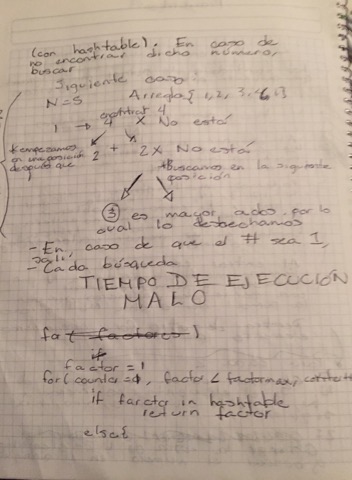 (con hashtable). En caso de
no encontrar dicho número,
buscar
Siguiente caso:
N=5 Arreglo{1, 2, 3, 4, 5}
1 → 4 × No está
*empezamos
en una posición 2 + 2 × No está
después que
1
*Buscamos en la siguiente
posición
③ es mayor a dos por lo
cual lo desechamos
- En caso de que el # sea 1,
- Cada búsqueda
TIEMPO DE EJECUCIÓN
MALO
for( factores )
if
factor = 1
for(counter=0, factor < factormax, counter++
if factor in hashtable
return factor
else{